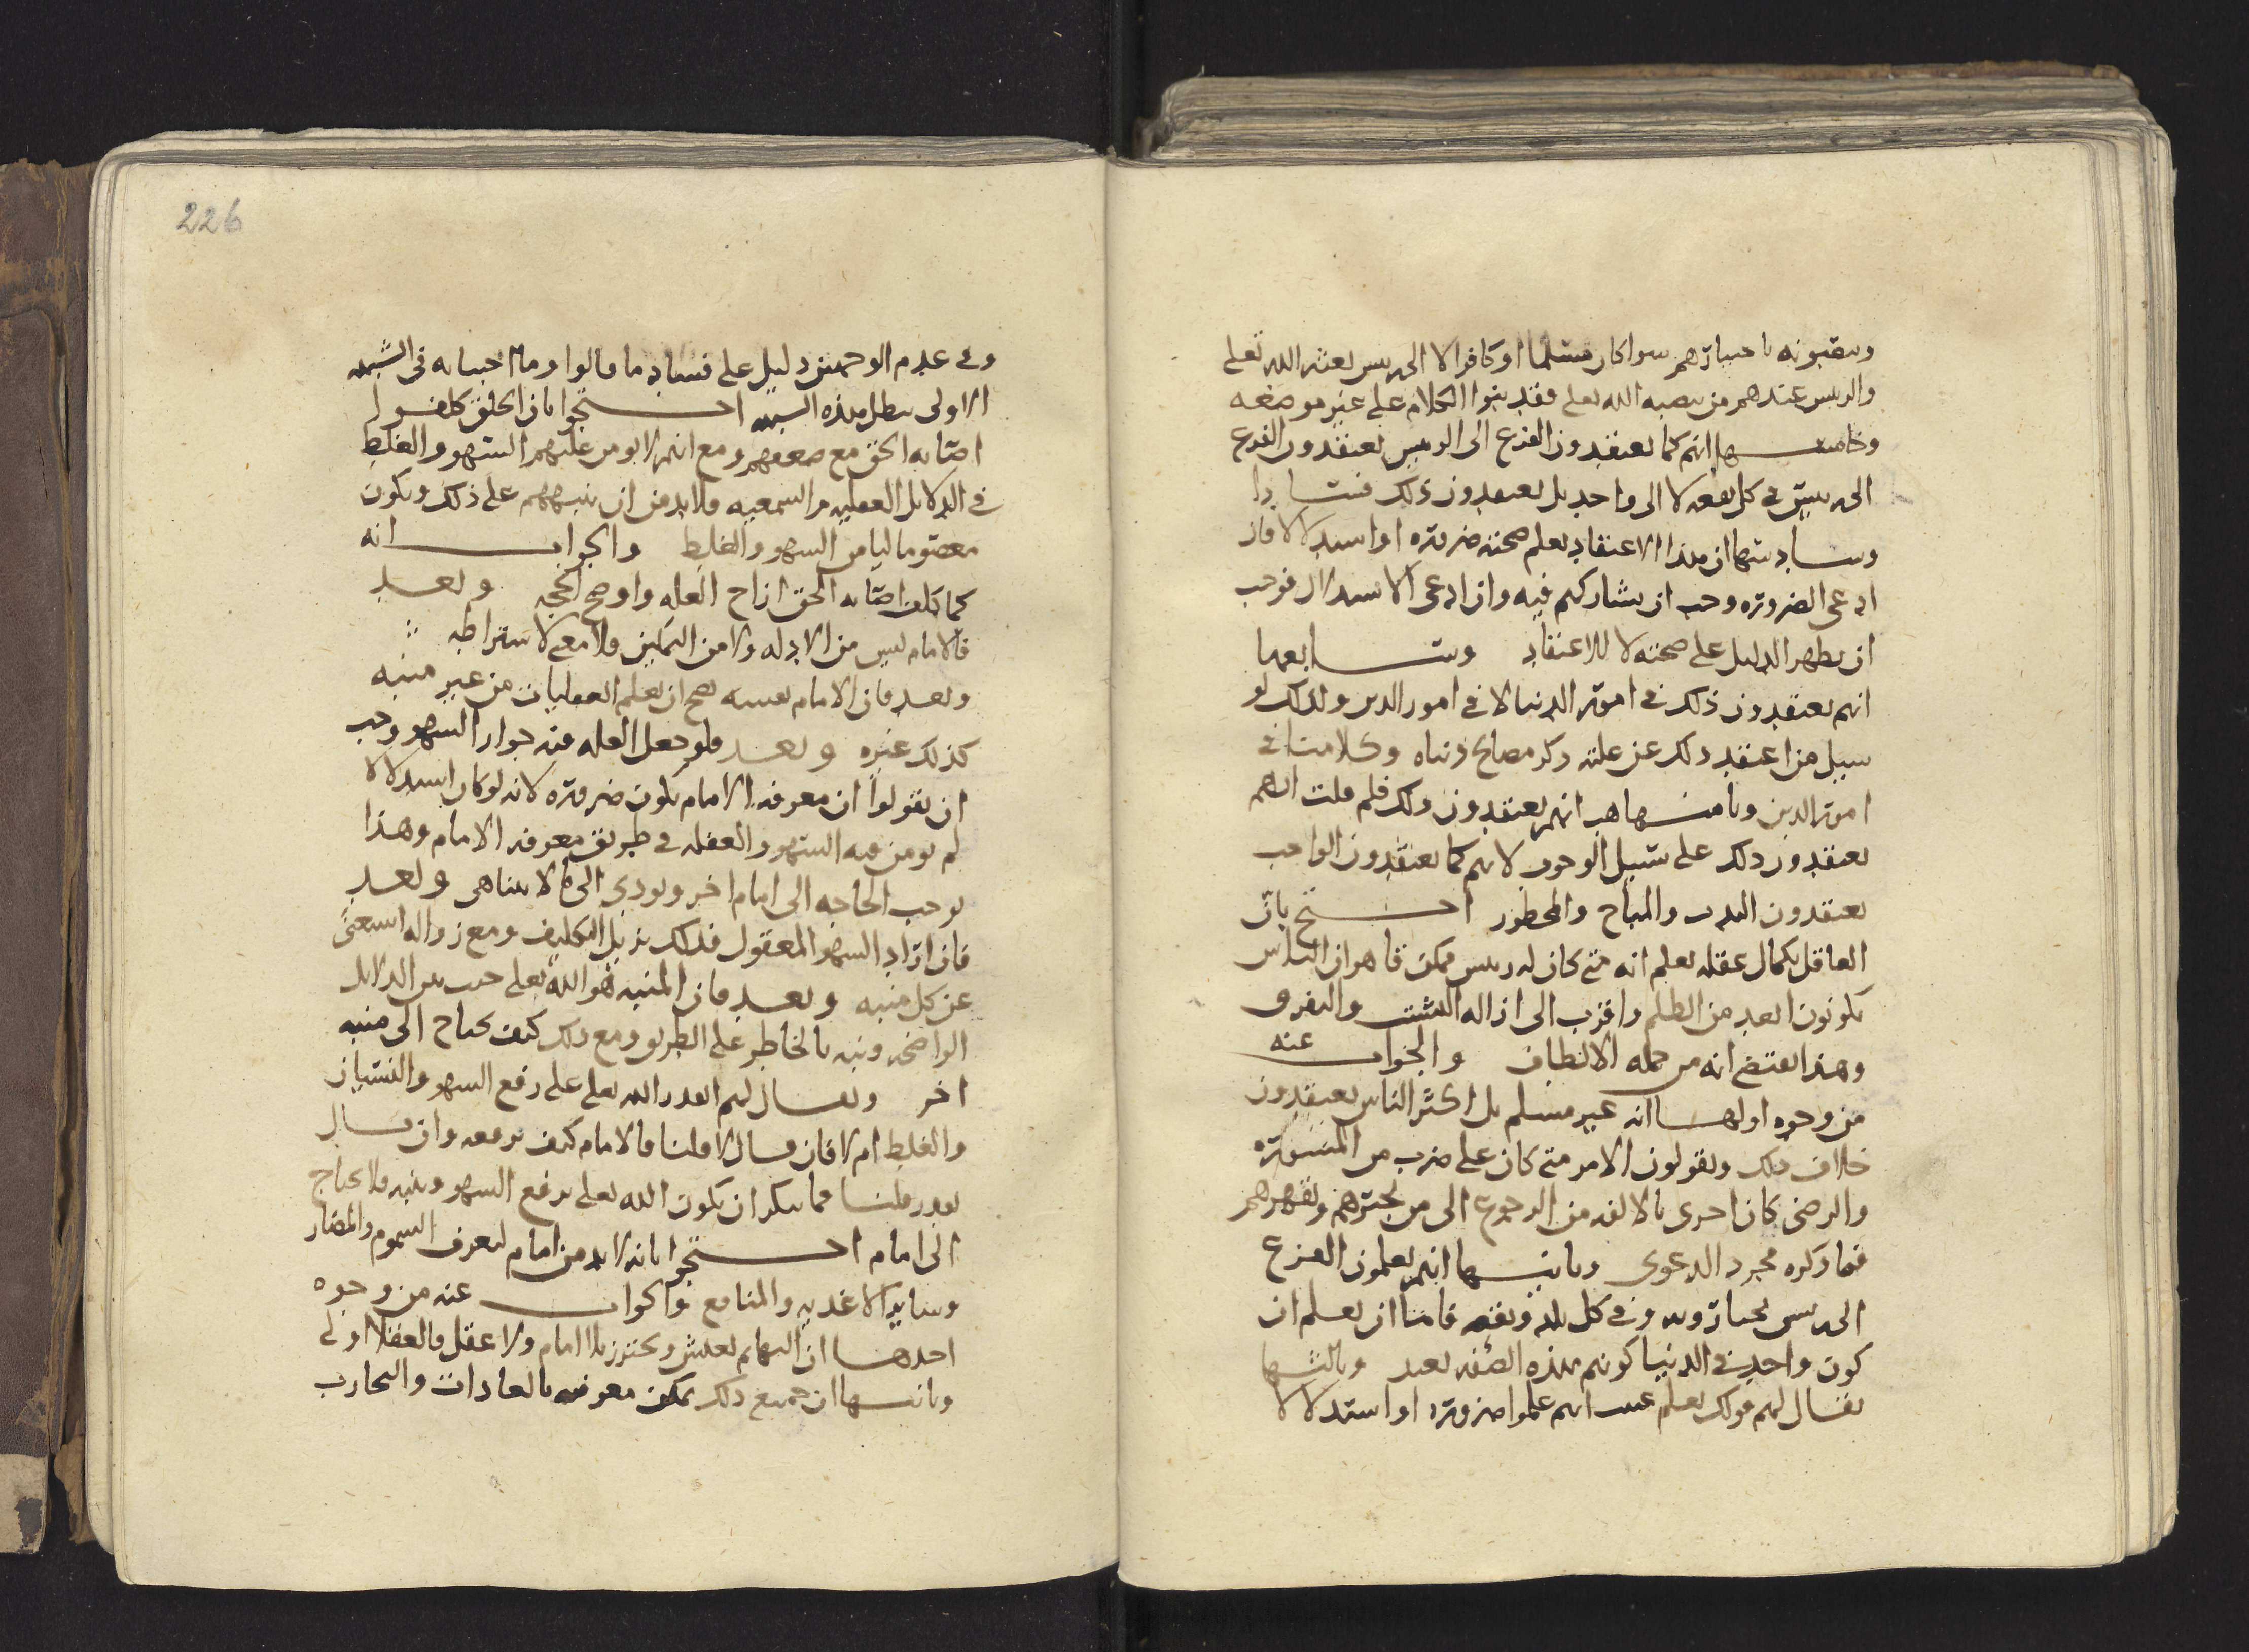 وينصبونه باختيارهم سوا كان مسلما او كافرا لا الى رئيس بعثه الله تعلى
والرئيس عندهم من نصبه الله تعلى فقد بنوا الكلام على غير موضعه
وخامسها انهم كما يعتقدون الفزع الى الرئيس يعتقدون الفزع
الى رئيس في كل بقعه لا الى واحد بل يعتقدون ذلك فسادا
وسادسها ان هذا الاعتقاد يعلم صحته ضروره او استدلالا فان
ادعى الضروره وجب ان نشاركهم فيه وان ادعى الاستدلال فوجب
ان يظهر الدليل على صحته لا للاعتقاد وسابعها
انهم يعتقدون ذلك في امور الدنيا لا في امور الدين ولذلك لو
سيل من اعتقد ذلك عن علته ذكر مصالح دنياه وكلامنا في
امور الدين وثامنها هب انهم يعتقدون ذلك فلم قلت انهم
يعتقدون ذلك على سبيل الوجوب لانهم كما يعتقدون الواجب
يعتقدون الندب والمباح والمحظور احتج بان
العاقل بكمال عقله يعلم انه متى كان له رئيس ممكن قاهر ان الناس
يكونون ابعد من الظلم واقرب الى ازاله التشتت والتفرق
وهذا يقتضي انه من جمله الالطاف والجواب عنه
من وجوه اولها انه غير مسلم بل اكثر الناس يعتقدون
خلاف ذلك ويقولون الامر متى كان على ضرب من المشوره
والرضى كان احرى بالالفه من الرجوع الى من يجبرهم ويقهرهم
فما ذكره مجرد الدعوى وثانيها انهم يعلمون الفزع
الى رئيس يختارونه وفي كل بلد وبقعه فاما ان يعلم ان
كون واحد في الدنيا كونهم بهذه الصفه بعيد وثالثها
يقال لهم قولك يعلم عنيت انهم علموا ضروره او استدلالا
226
وفي عدم الوجهين دليل على فساد ما قالوا وما اجبنا به في الشبه
الاولى يبطل هذه الشبه احتجوا بان الخلق كلفوا
اصابه الحق مع ضعفهم ومع انهم لا يومن عليهم السهو والغلط
في الدلايل العقليه والسمعيه فلا بد من ان ينبههم على ذلك ويكون
معصوما ليامن السهو والغلط والجواب انه
كما كلف اصابه الحق ازاح العله واوضح الحجه وبعد
فالامام ليس من الادله ولا من التمكين فلا معنى لاشتراطه
وبعد فان الامام نفسه يصح ان يعلم العقليات من غير منبه
كذلك غيره وبعد فلو جعل العله فيه جواز السهو وجب
ان يقولوا ان معرفه الامام يكون ضروره لانه لو كان استدلالا
لم يومن فيه السهو والغفله في طريق معرفه الامام وهذا
يوجب الحاجه الى امام اخر ويودي الى ما لا يتناهى وبعد
فان اراد السهو المعقول فذلك يزيل التكليف ومع زواله استغنى
عن كل منبه وبعد فان المنبه هو الله تعلى حيث بين الدلايل
الواضحه ونبه بالخاطر على الطريق ومع ذلك كيف يحتاج الى منبه
اخر ويقال لهم ايقدر الله تعلى على رفع السهو والنسيان
والغلط ام لا فان قال لا قلنا فالامام كيف يرفعه وان قال
يقدر قلنا فما ينكر ان يكون الله تعلى يرفع السهو وينبه فلا يحتاج
الى امام احتجوا بانه لا بد من امام ليعرف السموم والمضار
وساير الاغذيه والمنافع والجواب عنه من وجوه
احدها ان البهايم يعيش ويحترز بلا امام ولا عقل فالعقلا اولى
وثانيها ان جميع ذلك يمكن معرفته بالعادات والتجارب